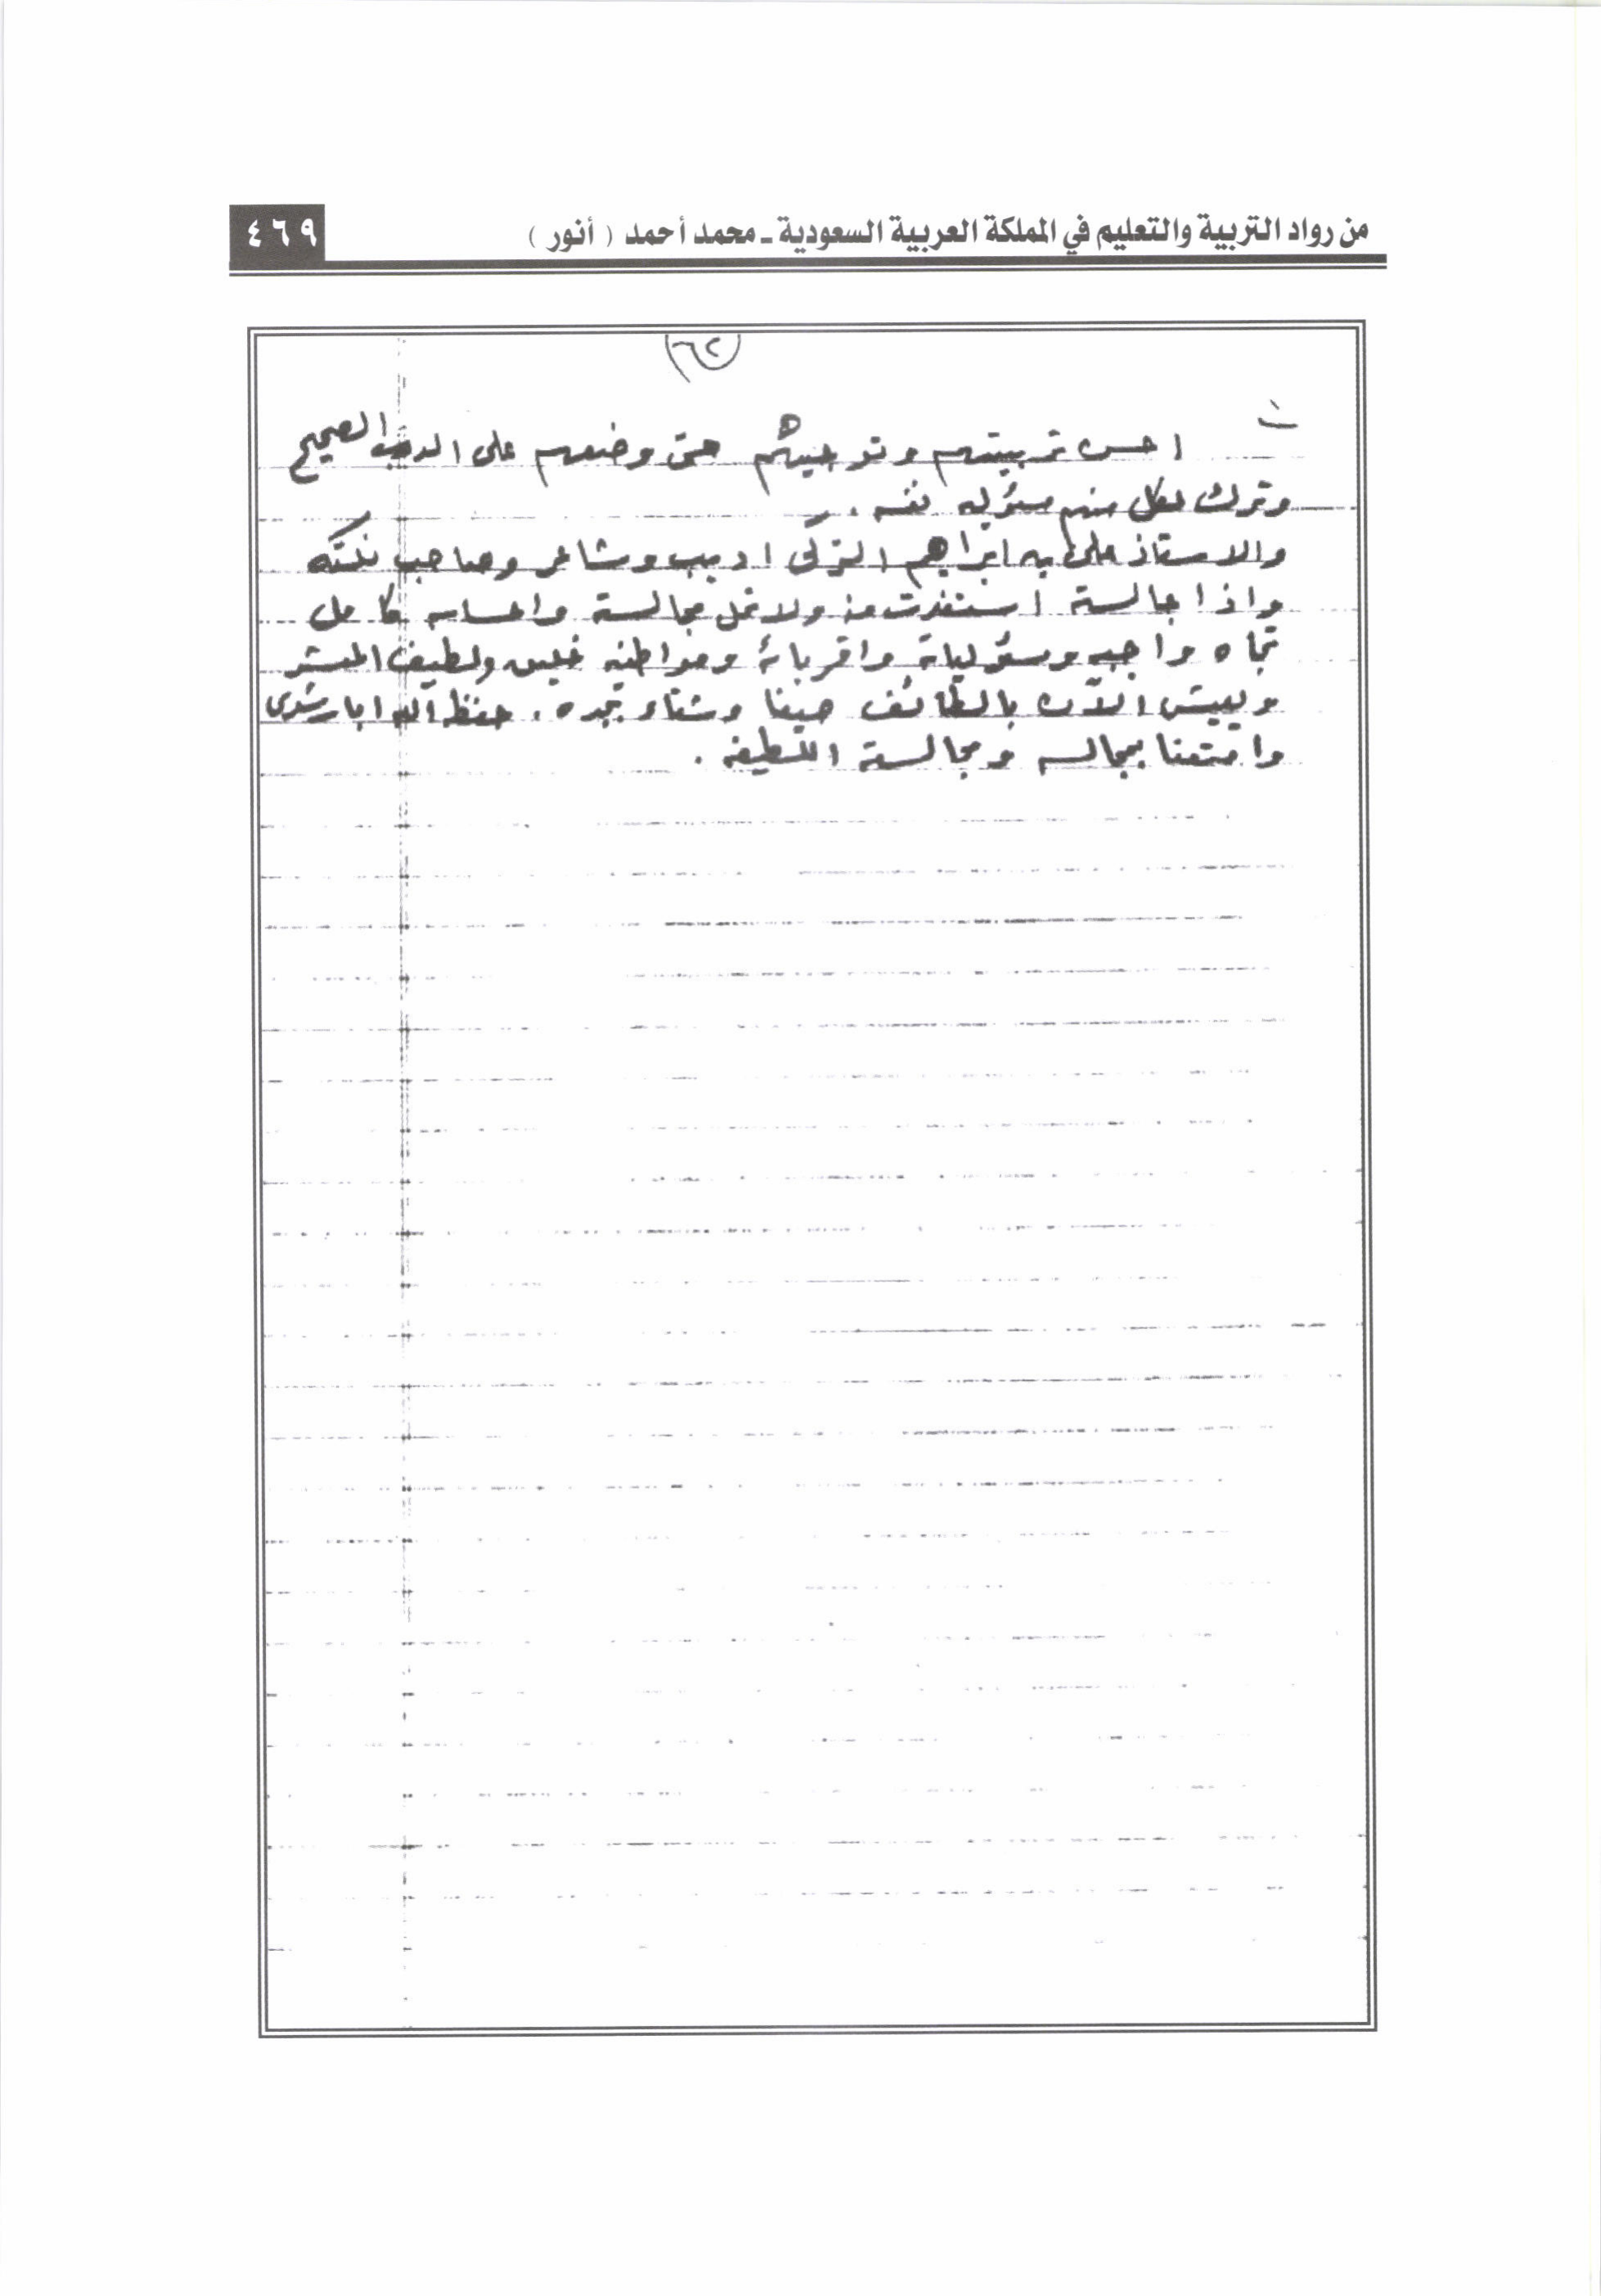 من رواد التربية والتعليم في المملكة العربية السعودية ـ محمد أحمد ( أنور )
٤٦٩
٦٢
احسن تربيتهم وتوجيههم حتى وضعهم على الدرب الصحيح
وترك لكل منهم مسؤليه نفسه .
والاستاذ على بن ابراهيم التركى اديب وشاعر وصاحب نكته
واذا جالسته استفدت منه ولا تمل مجالسته واحساسه كامل
تجاه واجبه ومسؤلياته واقربائه ومواطنيه خليق ولطيف المعشر
ويعيش الآن بالطائف صيفا وشتاء بجده . حفظ الله ابا رشدى
وامتعنا بمجالسه ومجالسته اللطيفه .